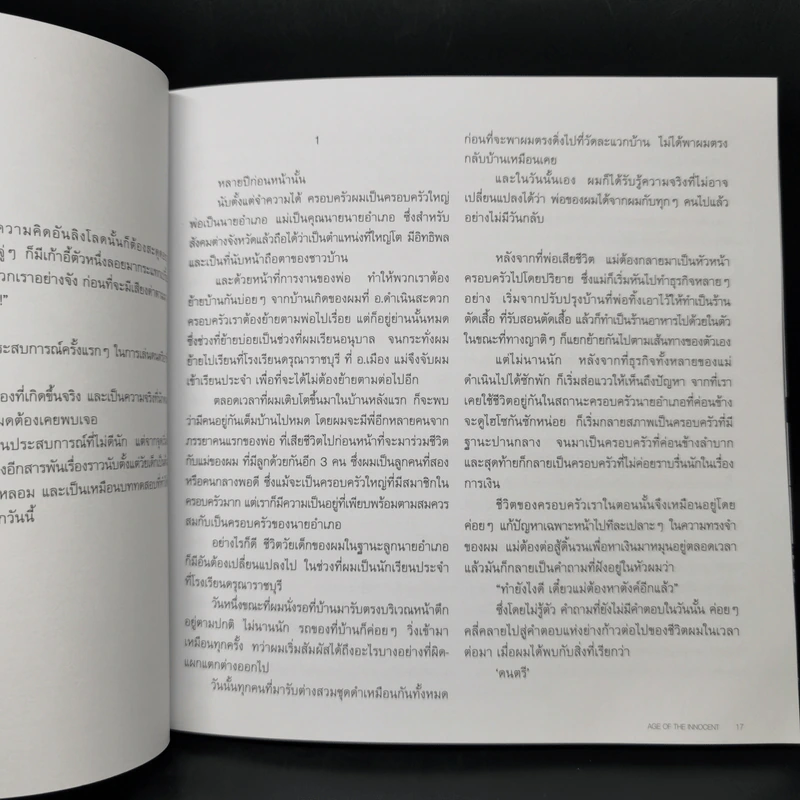 ความคิดอันลิงโลดนั้นก็ต้องสะดุด
ๆ ก็มีเก้าอี้ตัวหนึ่งลอยมากระแทก
วกเราอย่างจัง ก่อนที่จะมีเสียงด่าตาม
!"
ระสบการณ์ครั้งแรกๆ ในการเล่นดนตรี
องที่เกิดขึ้นจริง และเป็นความจริงที่นัก
มดต้องเคยพบเจอ
นประสบการณ์ที่ไม่ดีนัก แต่จาก
งอีกสารพันเรื่องราวนับตั้งแต่วัยเด็ก
หลอม และเป็นเหมือนบททดสอบที่ทำให้
กวันนี้
1
หลายปีก่อนหน้านั้น
นับตั้งแต่จำความได้ ครอบครัวผมเป็นครอบครัวใหญ่
พ่อเป็นนายอำเภอ แม่เป็นคุณนายนายอำเภอ ซึ่งสำหรับ
สังคมต่างจังหวัดแล้วถือได้ว่าเป็นตำแหน่งที่ใหญ่โต มีอิทธิพล
และเป็นที่นับหน้าถือตาของชาวบ้าน
และด้วยหน้าที่การงานของพ่อ ทำให้พวกเราต้อง
ย้ายบ้านกันบ่อยๆ จากบ้านเกิดของผมที่ อ.ดำเนินสะดวก
ครอบครัวเราต้องย้ายตามพ่อไปเรื่อย แต่ก็อยู่ย่านนั้นหมด
ซึ่งช่วงที่ย้ายบ่อยเป็นช่วงที่ผมเรียนอนุบาล จนกระทั่งผม
ย้ายไปเรียนที่โรงเรียนดรุณาราชบุรี ที่ อ.เมือง แม่จึงจับผม
เข้าเรียนประจำ เพื่อที่จะได้ไม่ต้องย้ายตามต่อไปอีก
ตลอดเวลาที่ผมเติบโตขึ้นมาในบ้านหลังแรก ก็จะพบ
ว่ามีคนอยู่กันเต็มบ้านไปหมด โดยผมจะมีพี่อีกหลายคนจาก
ภรรยาคนแรกของพ่อ ที่เสียชีวิตไปก่อนหน้าที่จะมาร่วมชีวิต
กับแม่ของผม ที่มีลูกด้วยกันอีก 3 คน ซึ่งผมเป็นลูกคนที่สอง
หรือคนกลางพอดี ซึ่งแม้จะเป็นครอบครัวใหญ่ที่มีสมาชิกใน
ครอบครัวมาก แต่เราก็มีความเป็นอยู่ที่เพียบพร้อมตามสมควร
สมกับเป็นครอบครัวของนายอำเภอ
อย่างไรก็ดี ชีวิตวัยเด็กของผมในฐานะลูกนายอำเภอ
ก็มีอันต้องเปลี่ยนแปลงไป ในช่วงที่ผมเป็นนักเรียนประจำ
ที่โรงเรียนดรุณาราชบุรี
วันหนึ่งขณะที่ผมนั่งรอที่บ้านมารับตรงบริเวณหน้าตึก
อยู่ตามปกติ ไม่นานนัก รถของที่บ้านก็ค่อยๆ วิ่งเข้ามา
เหมือนทุกครั้ง ทว่าผมเริ่มสัมผัสได้ถึงอะไรบางอย่างที่ผิด-
แผกแตกต่างออกไป
วันนั้นทุกคนที่มารับต่างสวมชุดดำเหมือนกันทั้งหมด
ก่อนที่จะพาผมตรงดิ่งไปที่วัดละแวกบ้าน ไม่ได้พาผมตรง
กลับบ้านเหมือนเคย
และในวันนั้นเอง ผมก็ได้รับรู้ความจริงที่ไม่อาจ
เปลี่ยนแปลงได้ว่า พ่อของผมได้จากผมกับทุกๆ คนไปแล้ว
อย่างไม่มีวันกลับ
หลังจากที่พ่อเสียชีวิต แม่ต้องกลายมาเป็นหัวหน้า
ครอบครัวไปโดยปริยาย ซึ่งแม่ก็เริ่มหันไปทำธุรกิจหลายๆ
อย่าง เริ่มจากปรับปรุงบ้านที่พ่อทิ้งเอาไว้ให้ทำเป็นร้าน
ตัดเสื้อ ที่รับสอนตัดเสื้อ แล้วก็ทำเป็นร้านอาหารไปด้วยในตัว
ในขณะที่ทางญาติๆ ก็แยกย้ายกันไปตามเส้นทางของตัวเอง
แต่ไม่นานนัก หลังจากที่ธุรกิจทั้งหลายของแม่
ดำเนินไปได้ซักพัก ก็เริ่มส่อแววให้เห็นถึงปัญหา จากที่เรา
เคยใช้ชีวิตอยู่กันในสถานะครอบครัวนายอำเภอที่ค่อนข้าง
จะดูไฮโซกันซักหน่อย ก็เริ่มกลายสภาพเป็นครอบครัวที่มี
ฐานะปานกลาง จนมาเป็นครอบครัวที่ค่อนข้างลำบาก
และสุดท้ายก็กลายเป็นครอบครัวที่ไม่ค่อยราบรื่นนักในเรื่อง
การเงิน
ชีวิตของครอบครัวเราในตอนนั้นจึงเหมือนอยู่โดย
ค่อยๆ แก้ปัญหาเฉพาะหน้าไปทีละเปลาะๆ ในความทรงจำ
ของผม แม่ต้องต่อสู้ดิ้นรนเพื่อหาเงินมาหมุนอยู่ตลอดเวลา
แล้วมันก็กลายเป็นคำถามที่ฝังอยู่ในหัวผมว่า
"ทำยังไงดี เดี๋ยวแม่ต้องหาตังค์อีกแล้ว"
ซึ่งโดยไม่รู้ตัว คำถามที่ยังไม่มีคำตอบในวันนั้น ค่อยๆ
คลี่คลายไปสู่คำตอบแห่งย่างก้าวต่อไปของชีวิตผมในเวลา
ต่อมา เมื่อผมได้พบกับสิ่งที่เรียกว่า
'ดนตรี'
AGE OF THE INNOCENT 17